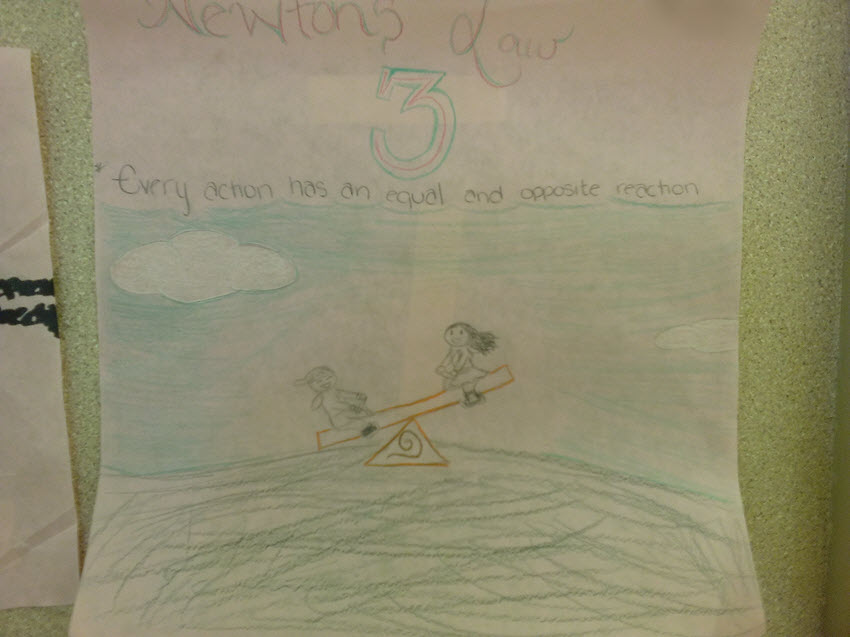 Newtons Law
3
* Every action has an equal and opposite reaction